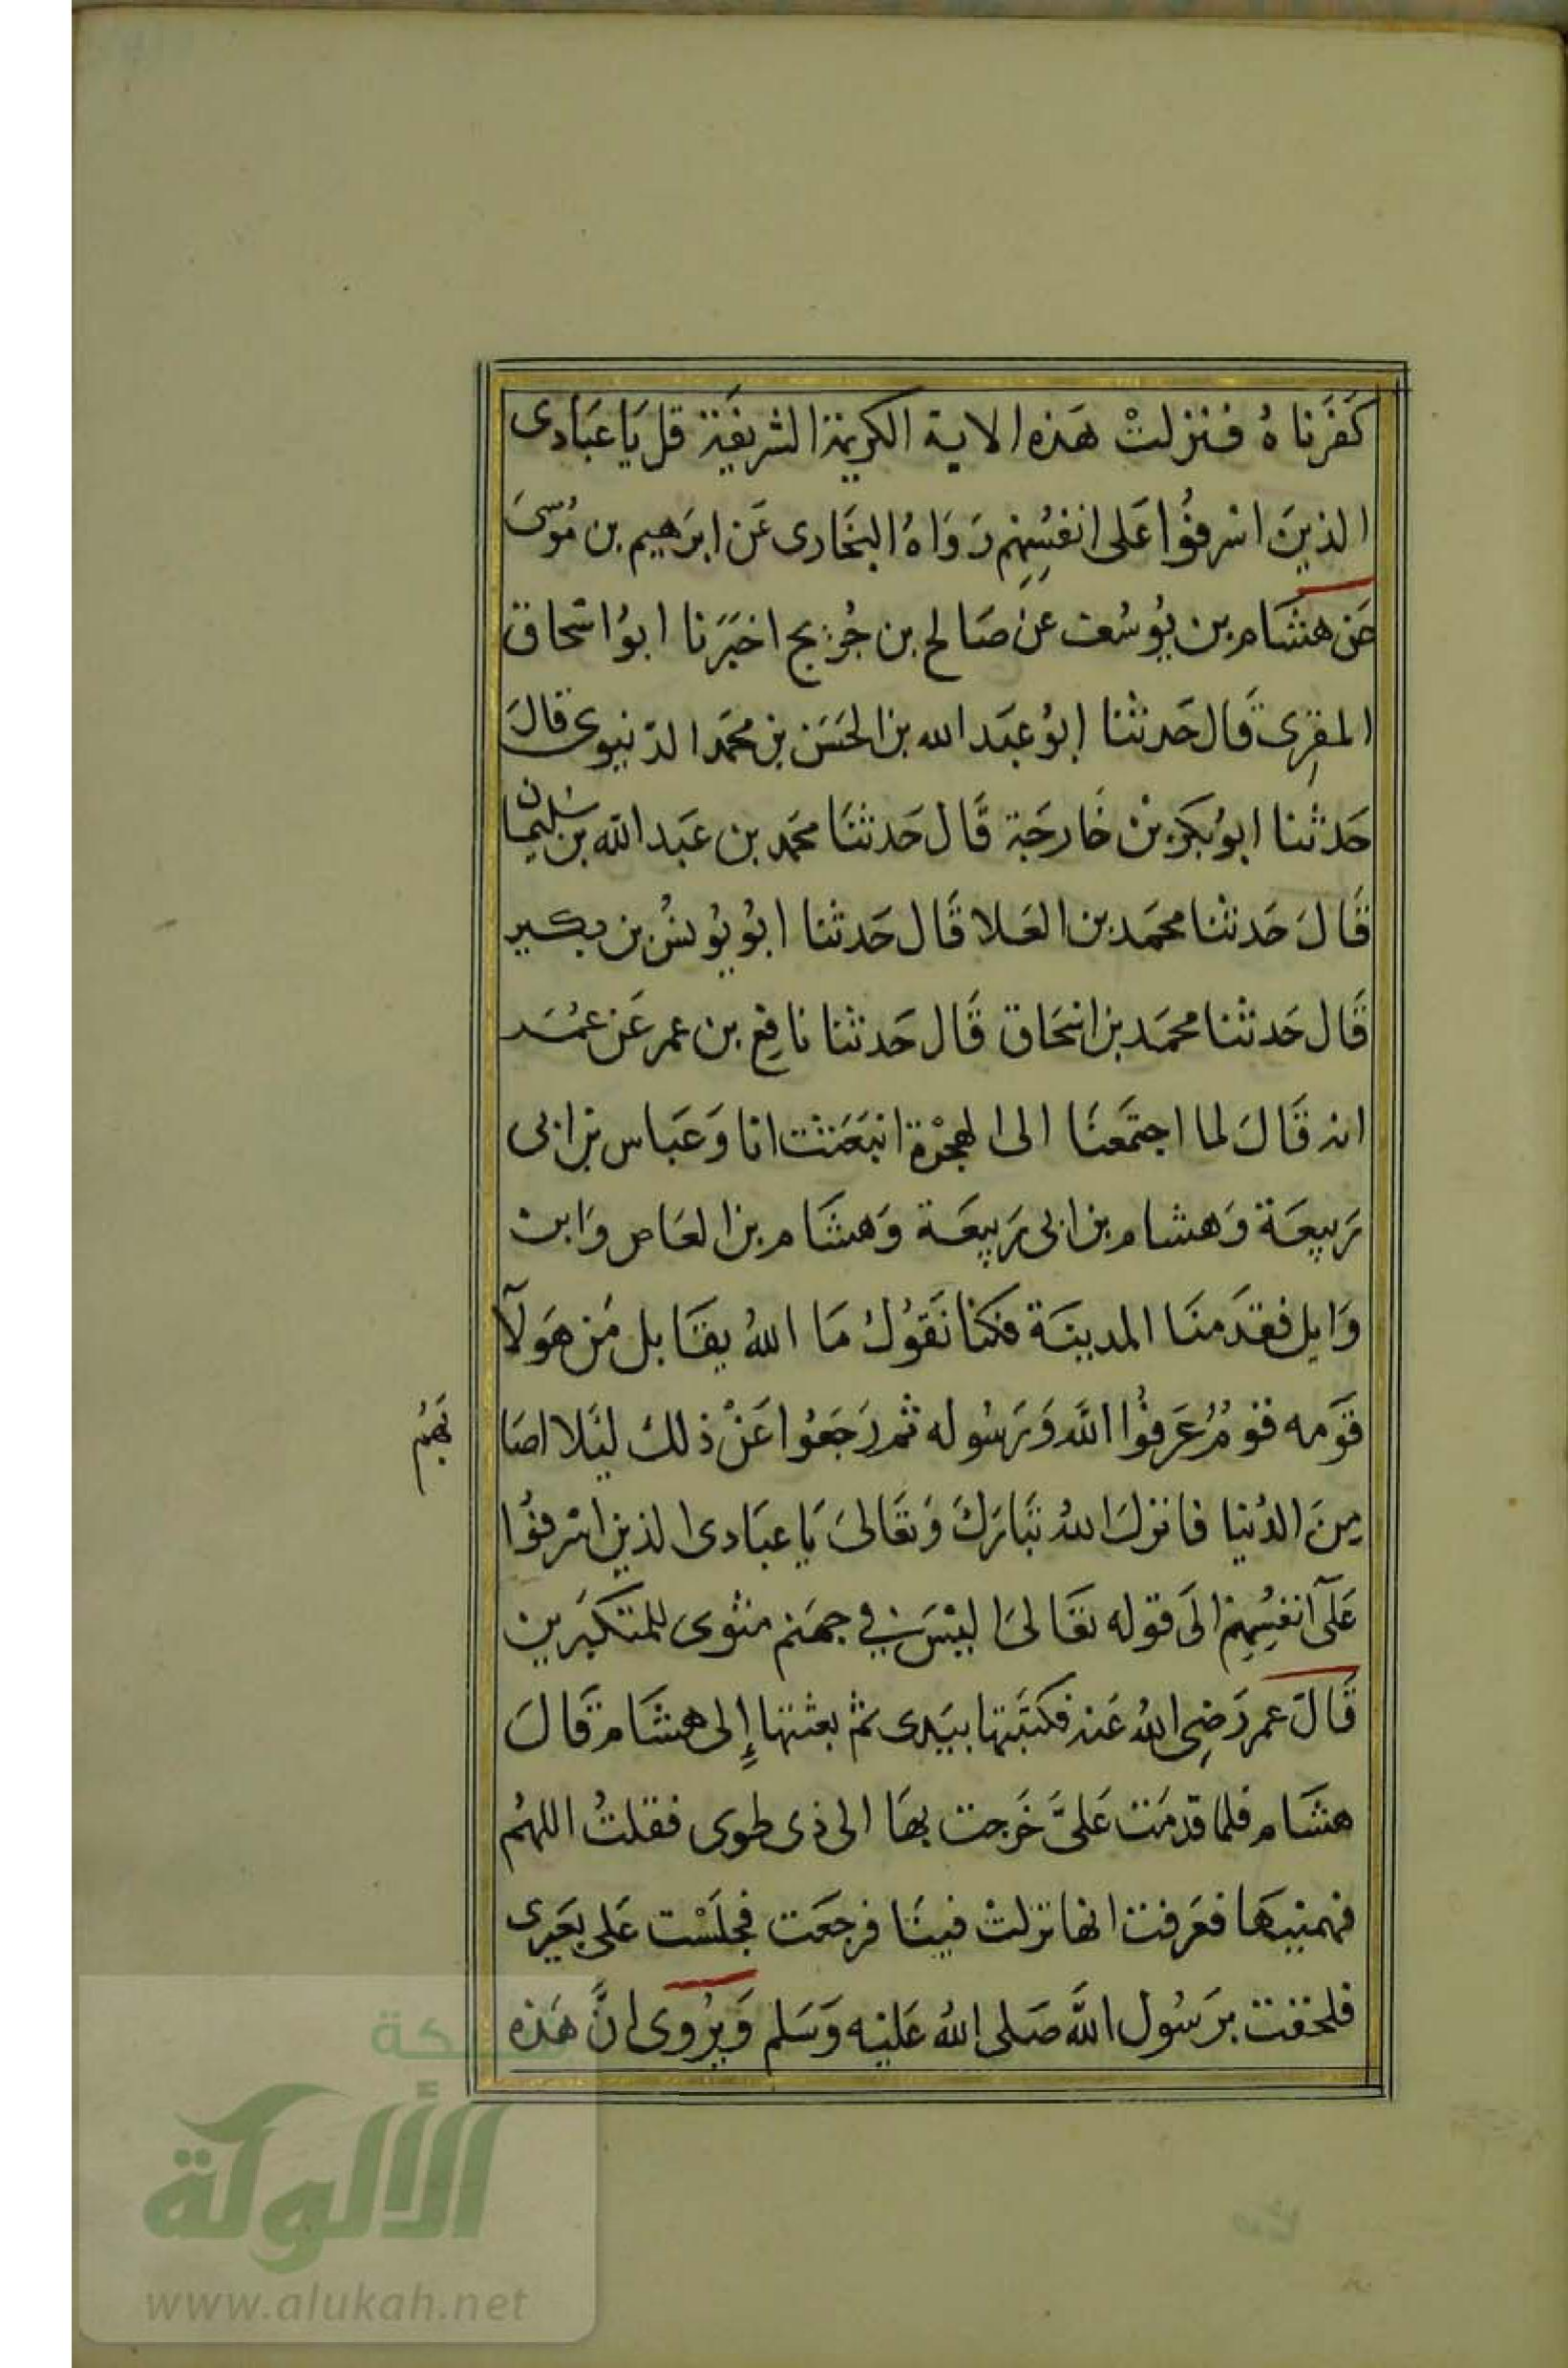 كَفَرَناهُ فنزلتْ هَذه الاية الكريمة الشريفَة قل يَا عبَادى
الذينَ اسْرفوُا عَلى انفسُهِم رَوَاهُ البخَارى عَن ابرَهيم بن مُوسىَ
عَن هشَام بن يوُسُف عنْ صَالح بن جُريج اخبَرَنا ابوُ اسْحَاق
المقرِى قَال حَدثنا ابوُ عبَد الله بن الحَسَن بن محمَد الدّنيوى قالَ
حَدثنا ابوُ بكَر بنْ خَارجَة قَال حَدثنَا محمَد بن عَبَد الله بن سُليمان
قَالَ حَدثنا محمَد بن العَلا قَال حَدثنا ابوُ يوُنسُ بن بكَير
قَال حَدثنا محمَد بن اسْحَاق قَال حَدثنا نافِع بن عمر عَن عمُر
انه قَالَ لما اجتمَعنَا الى الهجْرة انبَعَثْت انا وَعَباس بن ابى
رَبيعَة وَهشام بن ابى رَبيعَة وَهشَام بن العَاص وَابن
وَايل فقدَمنَا المدينَة فكنا نَقوُلُ مَا اللهُ يقَابل مَن هَولآ
قوَمه قومُ عَرفوُا اللهَ وَرَسُوله ثم رَجَعوُا عَنْ ذلك لبَلا اصَا
بَهمُ
مِنَ الدُنيا فانزلَ اللهُ تبَارَكَ وَتعَالىَ يَا عبَادى الذين اسْرفوُا
عَلَى انفسُهِم الَى قوله تعَالىَ اليْسَ في جهَنم مثوى للمتكبَرين
قَالَ عمر رَضِى اللهُ عَنه فكتَبتها بيَدى ثم بعثتها إلى هشَام قَالَ
هشَام فلما قدمَت عَلىَّ خَرجت بهَا الى ذى طوى فقلتُ اللهمُ
فهمنيهَا فعَرفت انها نزلتْ فينَا فرجَعَت فجَلسْت عَلى بعَيرى
فلحقت برَسُول اللهَ صَلى اللهُ عَليْه وَسَلم وَيرُوى انَّ هَذه
شبكة
الألوكة
www.alukah.net